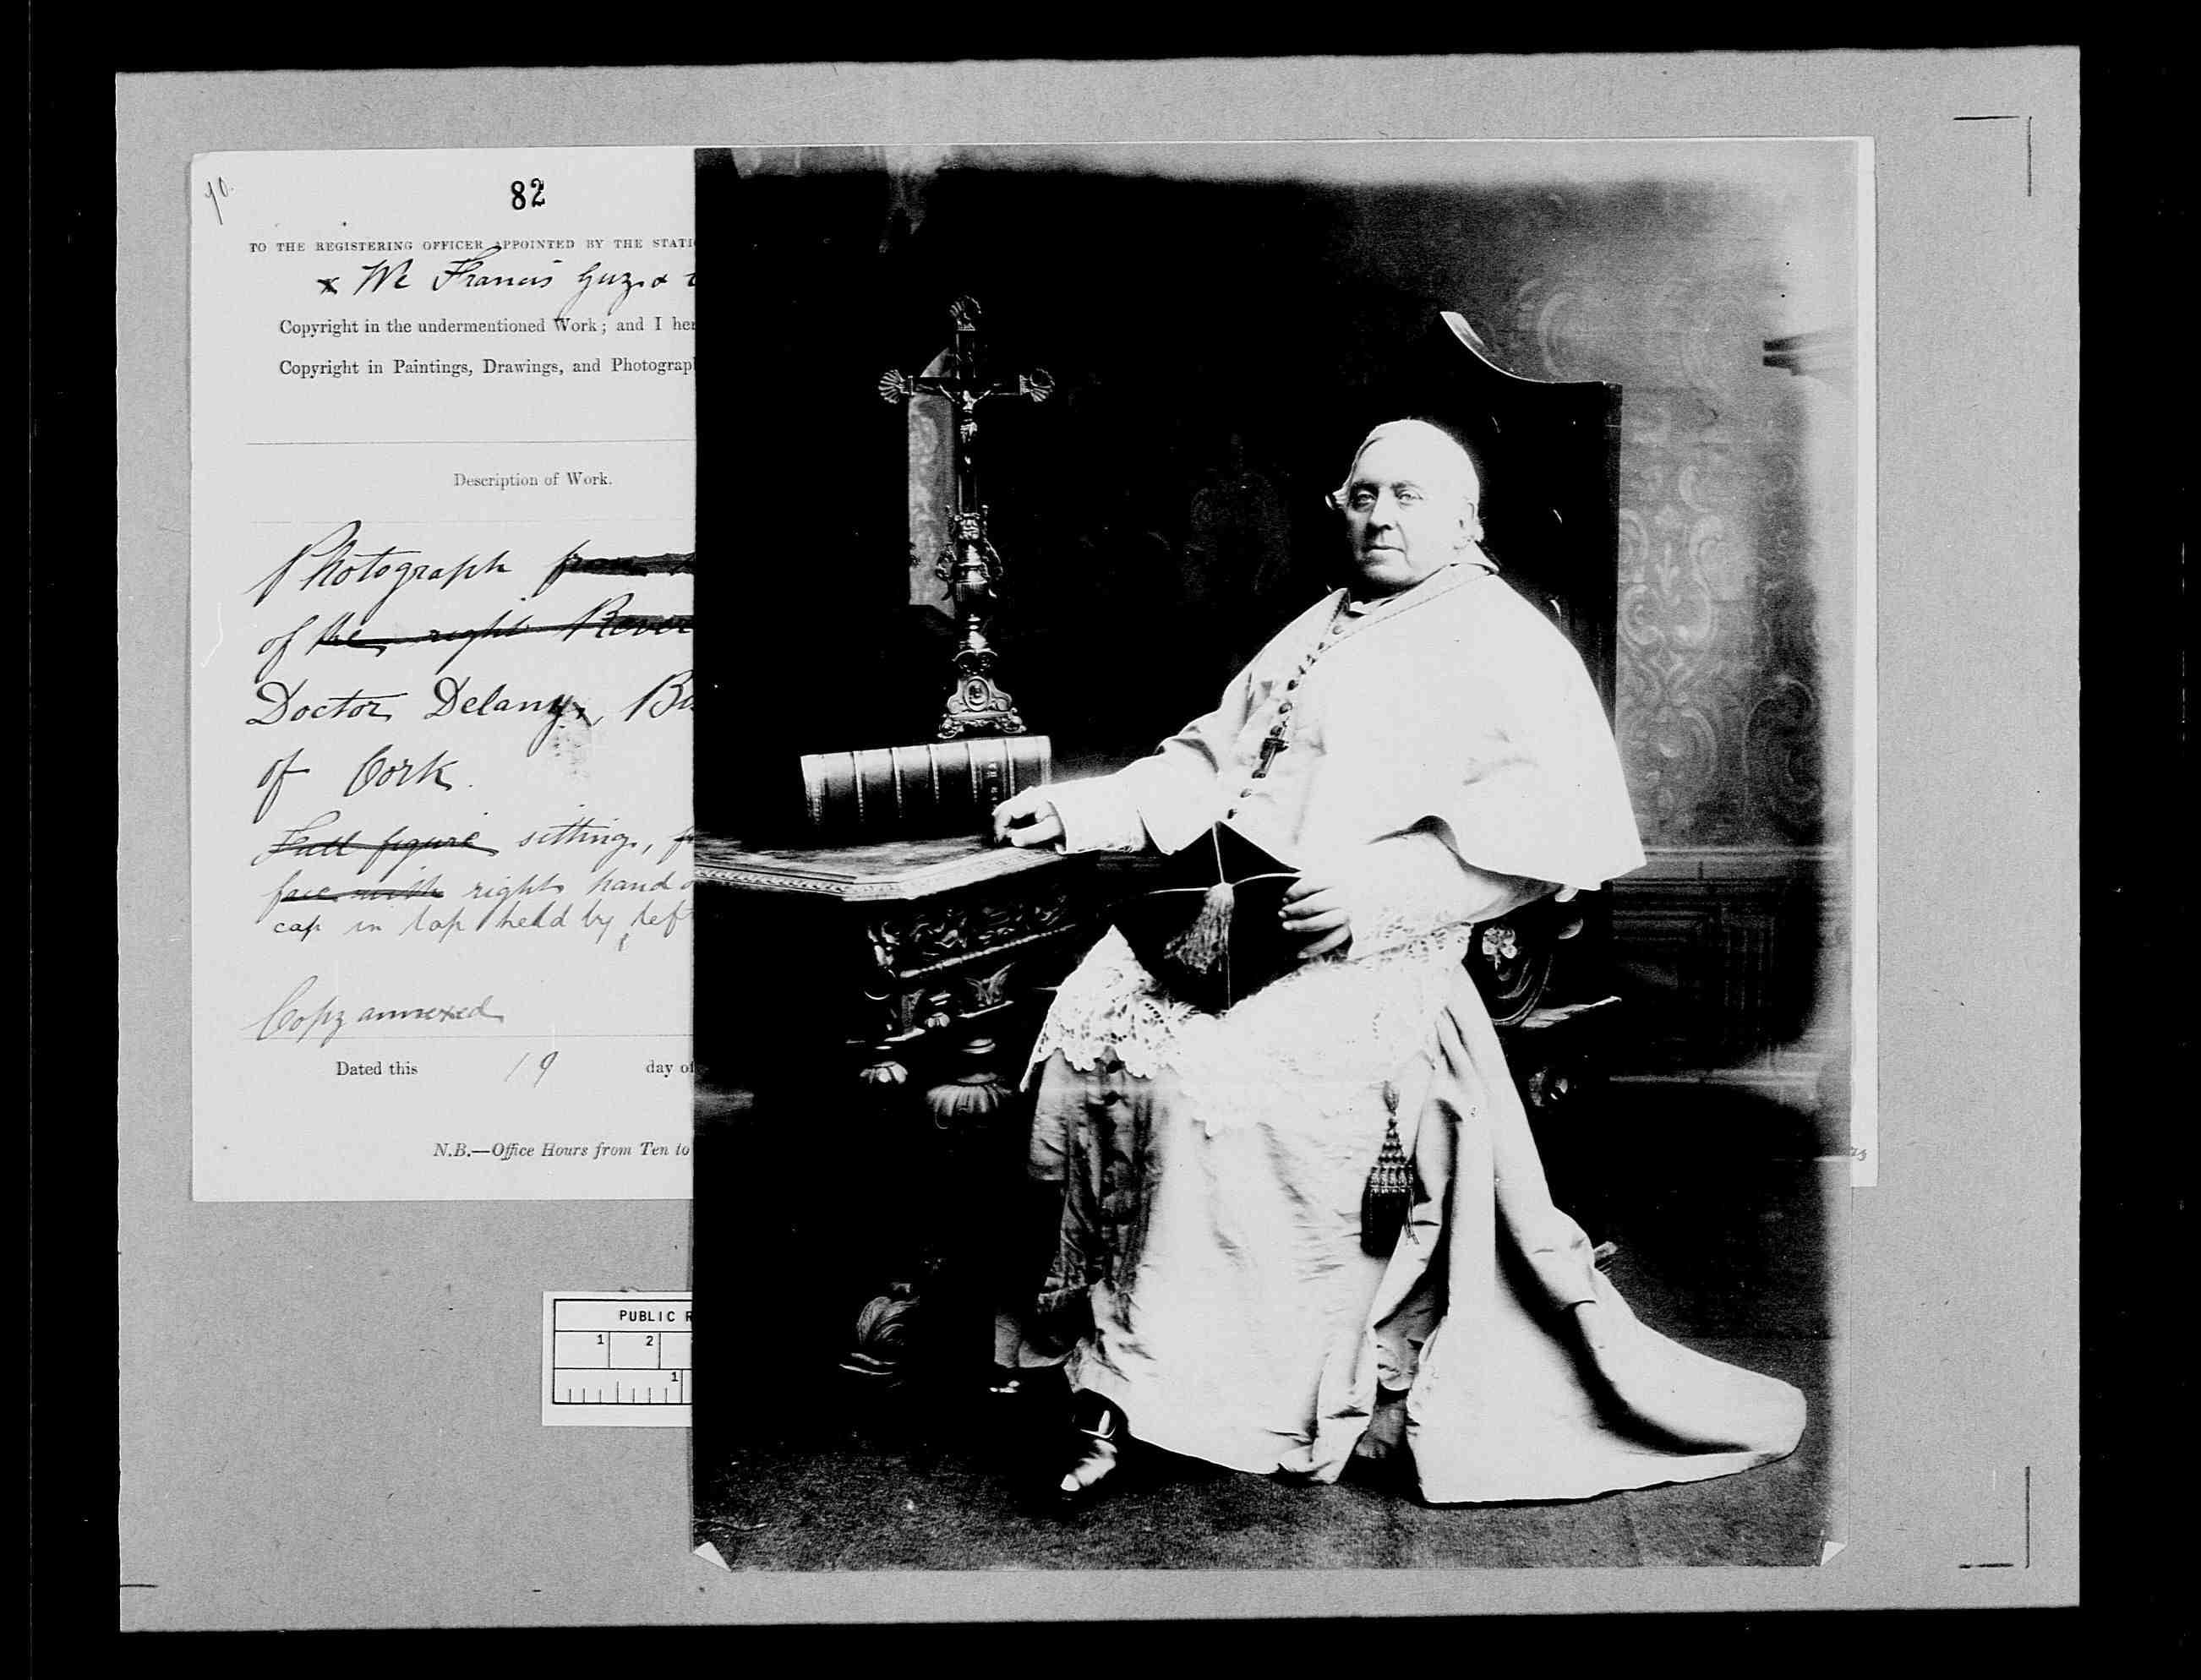 90.
82
TO THE REGISTERING OFFICER APPOINTED BY THE STATI
x We Francis Guy &
Copyright in the undermentioned Work; and I her
Copyright in Paintings, Drawings, and Photograp
Description of Work.
Photograph from
of the right Rever
Doctor Delany, Bi
of Cork.
Full figure sitting, f
face with right hand o
cap in lap held by left
Copy annexed
Dated this 19 day of
N.B.—Office Hours from Ten to
PUBLIC R
1 2
1